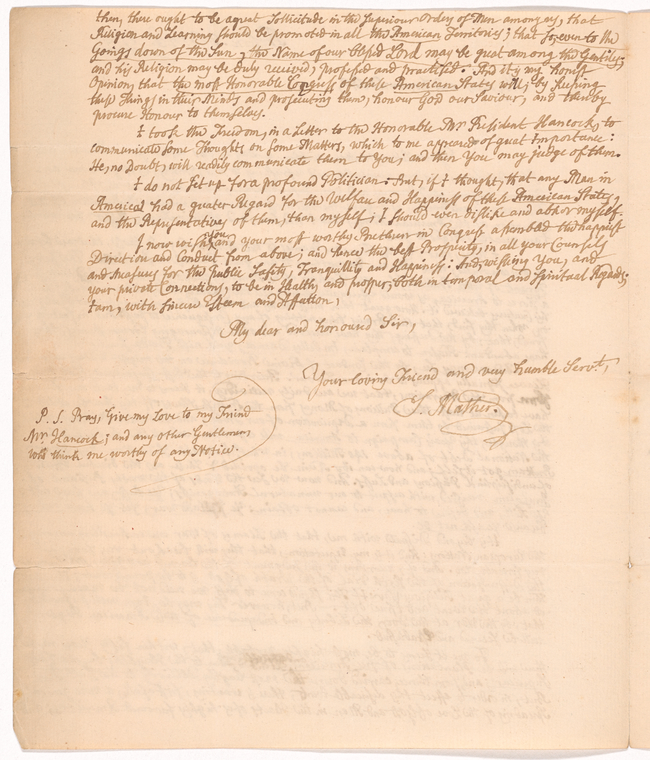 then, there ought to be a great Sollicitude in the Superiour Orders of Men among us, that
Religion and Learning should be promoted in all the American Territories; that so, even to the
Goings down of the Sun, the Name of our blessed Lord may be great among the Gentiles;
and his Religion may be duly received, professed and practised. And it is my honest
Opinion, that the most Honorable Congress of these American States will, by keeping
these Things in their Minds and prosecuting them, honour God our Saviour, and thereby
procure Honour to themselves.
I took the Freedom, in a Letter to the Honorable Mr. President Hancock, to
communicate some Thoughts on some Matters, which to me appeared of great importance:
He, no Doubt, will readily communicate them to You; and then You may judge of them.
I do not set up for a profound Politician: But, if I thought, that any Man in
America had a greater Regard for the Welfare and Happiness of these American States,
and the Representatives of them, than myself; I should even dislike and abhor myself.
I now wish you and your most worthy Brethren in Congress assembled the happiest
Direction and Conduct from above; and hence the best Prosperity, in all your Counsels
and Measures for the public Safety, Tranquillity and Happiness: And, wishing You, and
your private Connections, to be in Health, and prosper, both in temporal and Spiritual Regards;
I am, with sincere Esteem and Affection,
My dear and honoured Sir,
Your loving Friend and very humble Servt,
S. Mather.
P. S. Pray, Give my Love to my Friend
Mr. Hancock; and any other Gentlemen,
who think me worthy of any Notice.